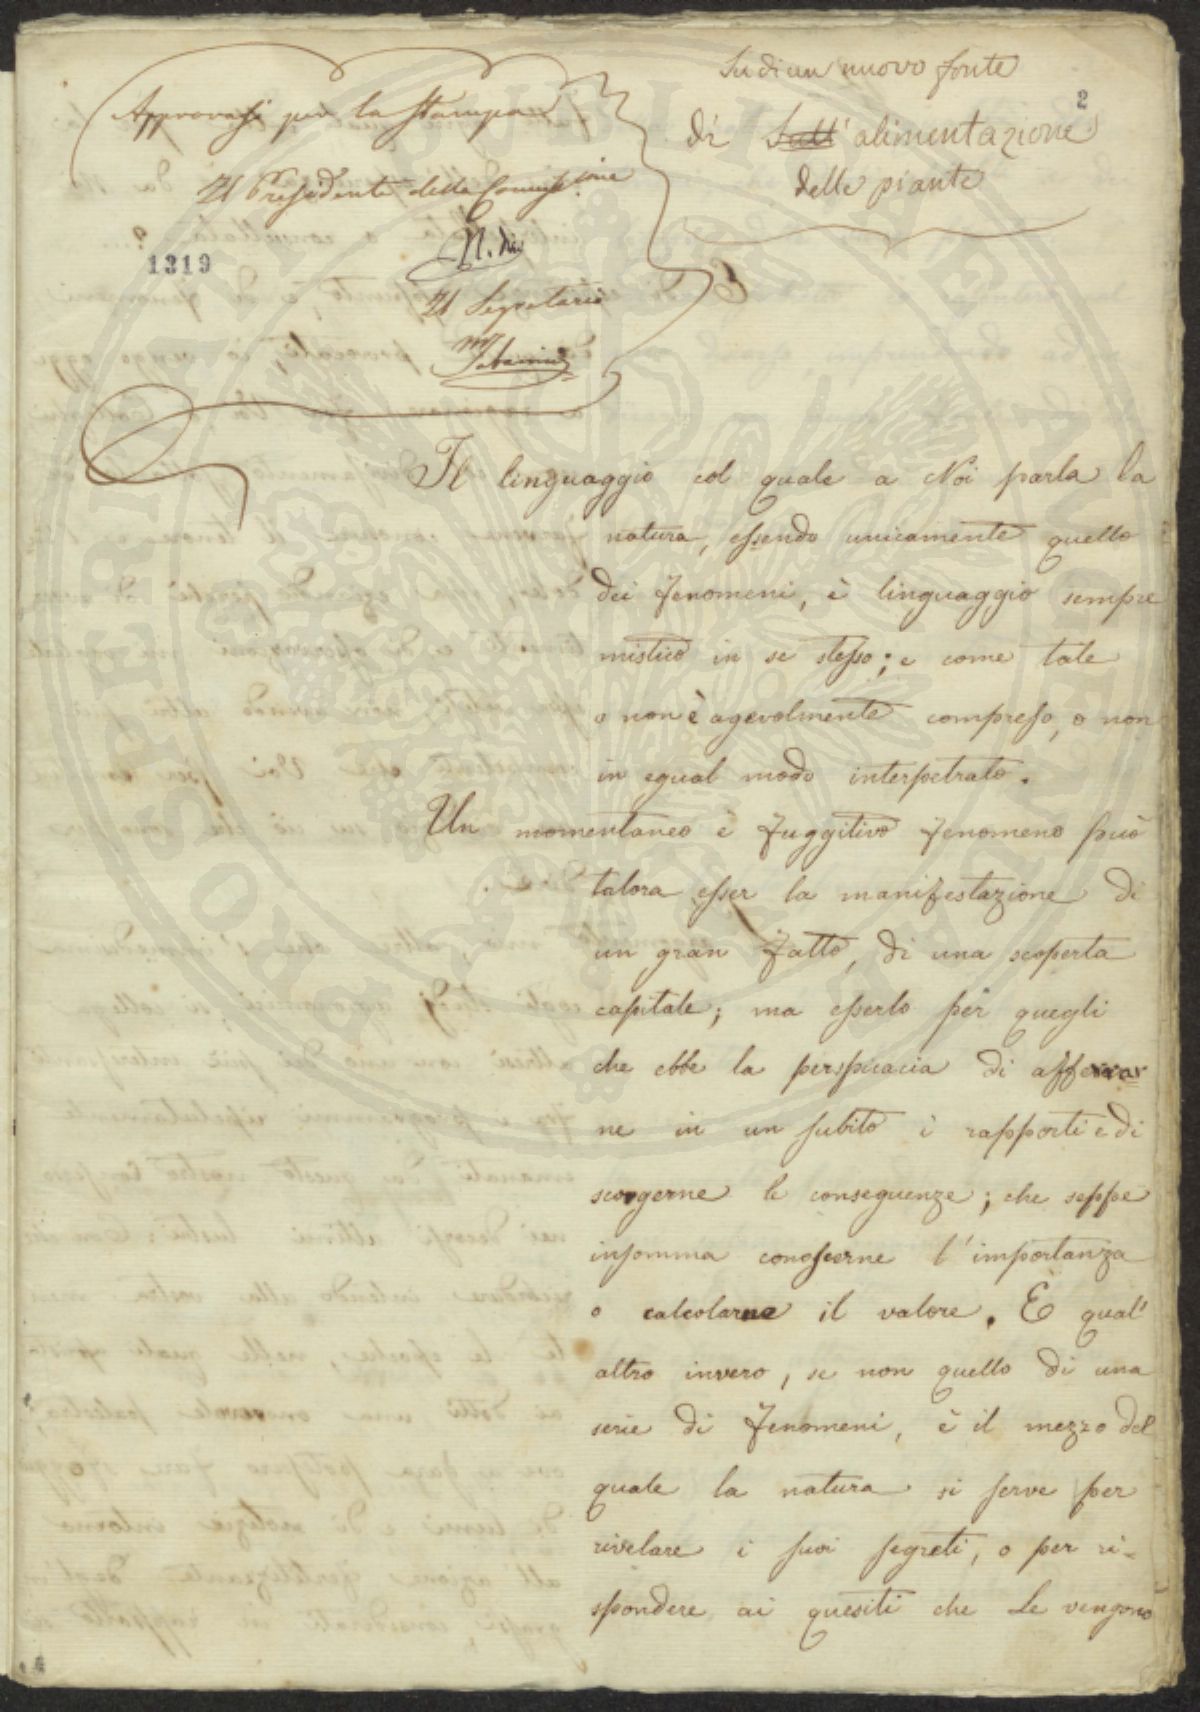 Approvasi per la Stampa
Il Presidente della Commissione
N.
1319
Il Segretario
Su di un nuovo fonte
2
di Sull' alimentazione
delle piante
Il linguaggio col quale a Noi parla la
natura, essendo unicamente quello
dei fenomeni, è linguaggio sempre
mistico in se stesso; e come tale
o non è agevolmente compreso, o non
in egual modo interpetrato.
Un momentaneo e fuggitivo fenomeno può
talora esser la manifestazione di
un gran fatto, di una scoperta
capitale; ma esserlo per quegli
che ebbe la perspicacia di afferrar
ne in un subito i rapporti e di
scorgerne le conseguenze; che seppe
insomma conoscerne l'importanza
o calcolarne il valore. E qual'
altro invero, se non quello di una
serie di fenomeni, è il mezzo del
quale la natura si serve per
rivelare i suoi segreti, o per ri-
spondere ai quesiti che Le vengono